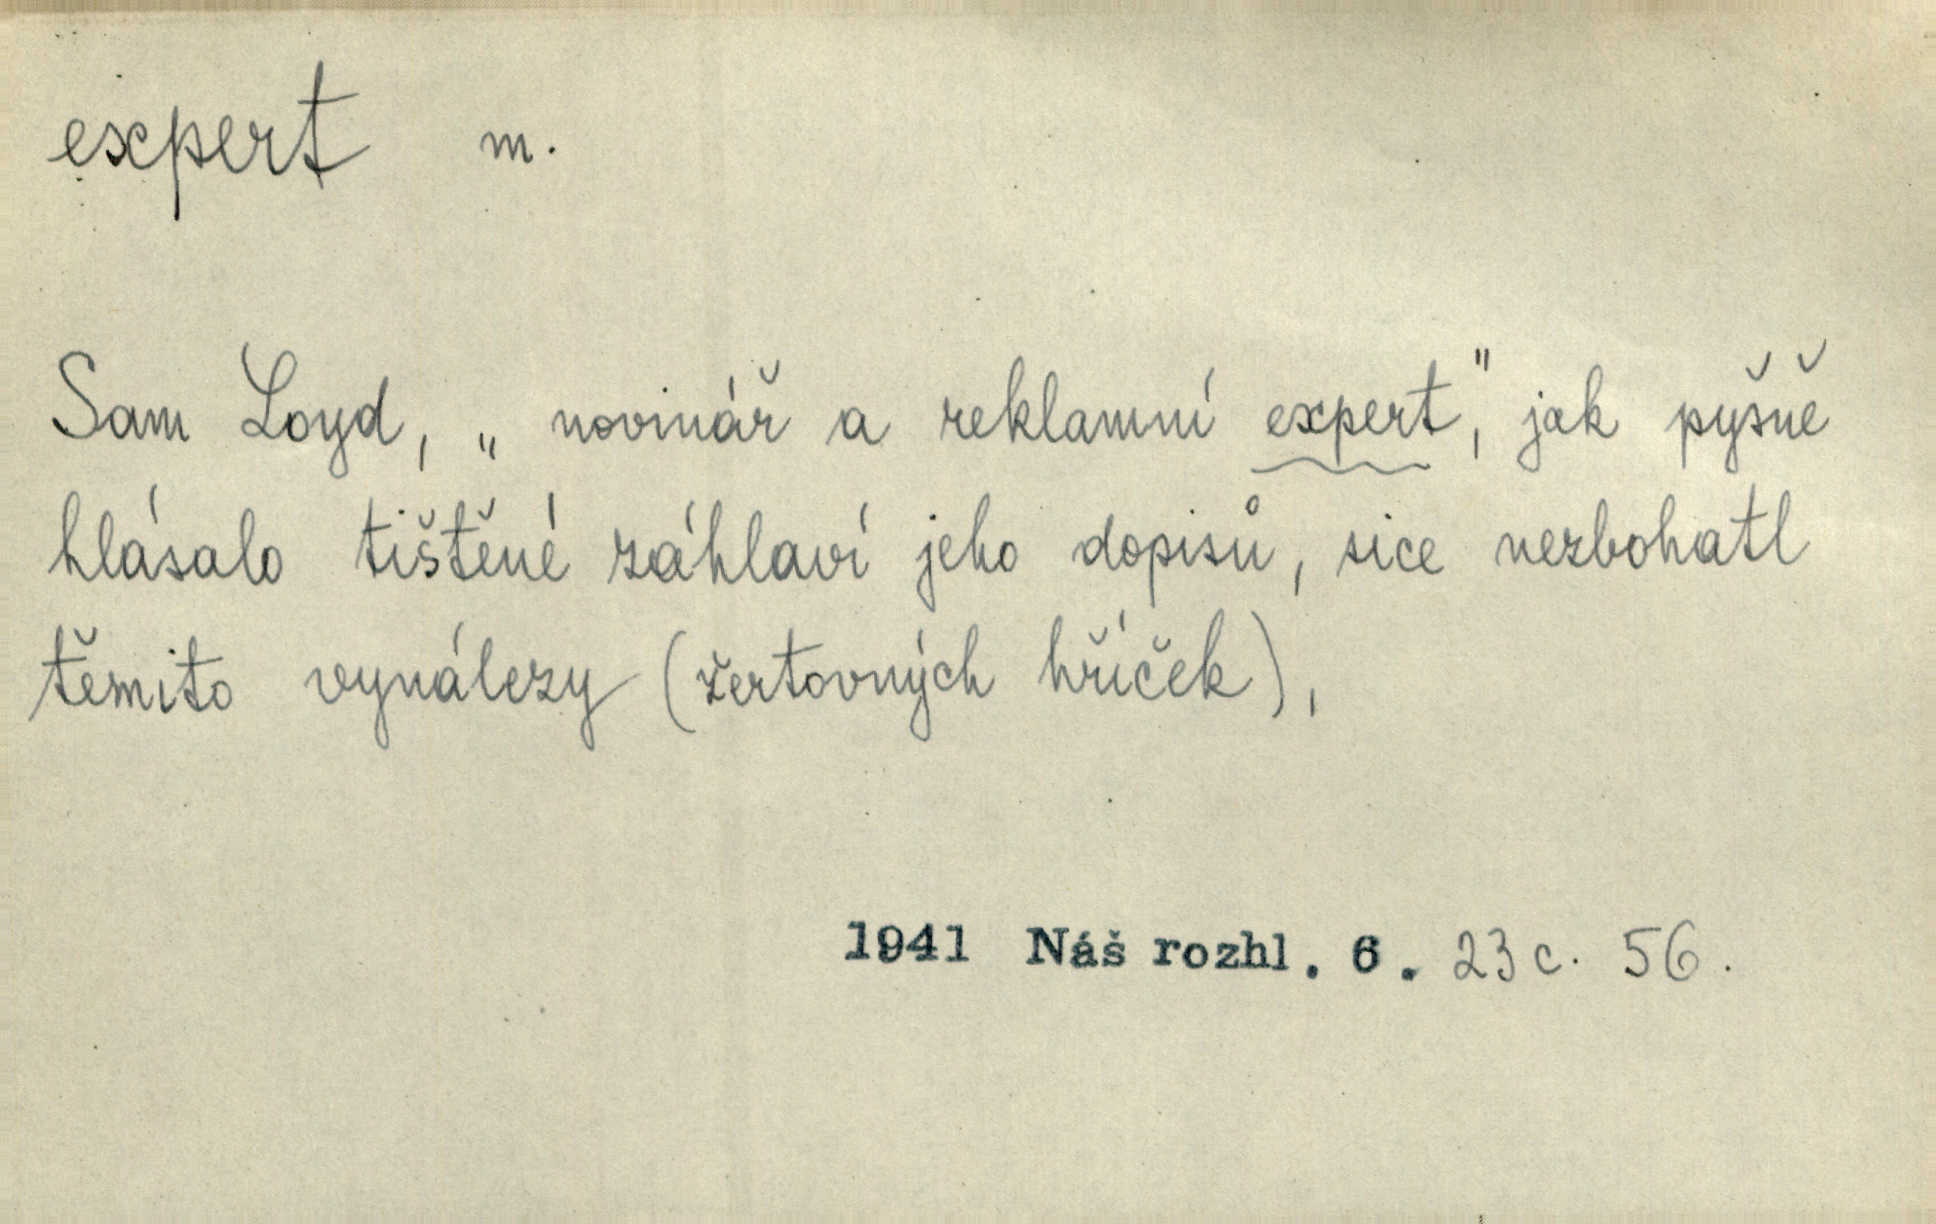 expert m.
Sam Loyd, „novinář a reklamní expert," jak pyšně
hlásalo tištěné záhlaví jeho dopisů, sice nezbohatl
těmito vynálezy (žertovných hříček),
1941 Náš rozhl. 6. 23 c. 56.